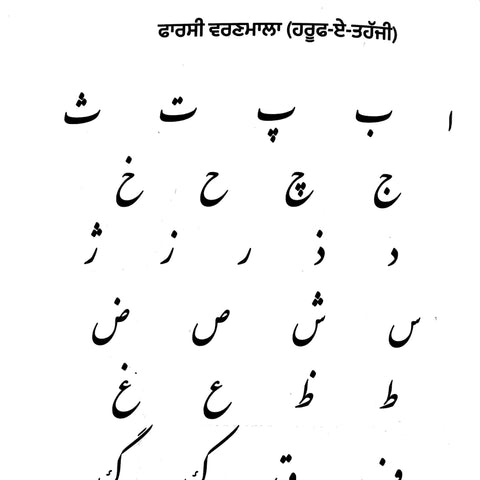 ਫਾਰਸੀ ਵਰਣਮਾਲਾ (ਹਰੂਫ-ਏ-ਤਹੱਜੀ)
ا ب پ ت ث
ج چ ح خ
د ذ ر ز ژ
س ش ص ض
ط ظ ع غ
ف ق ک گ